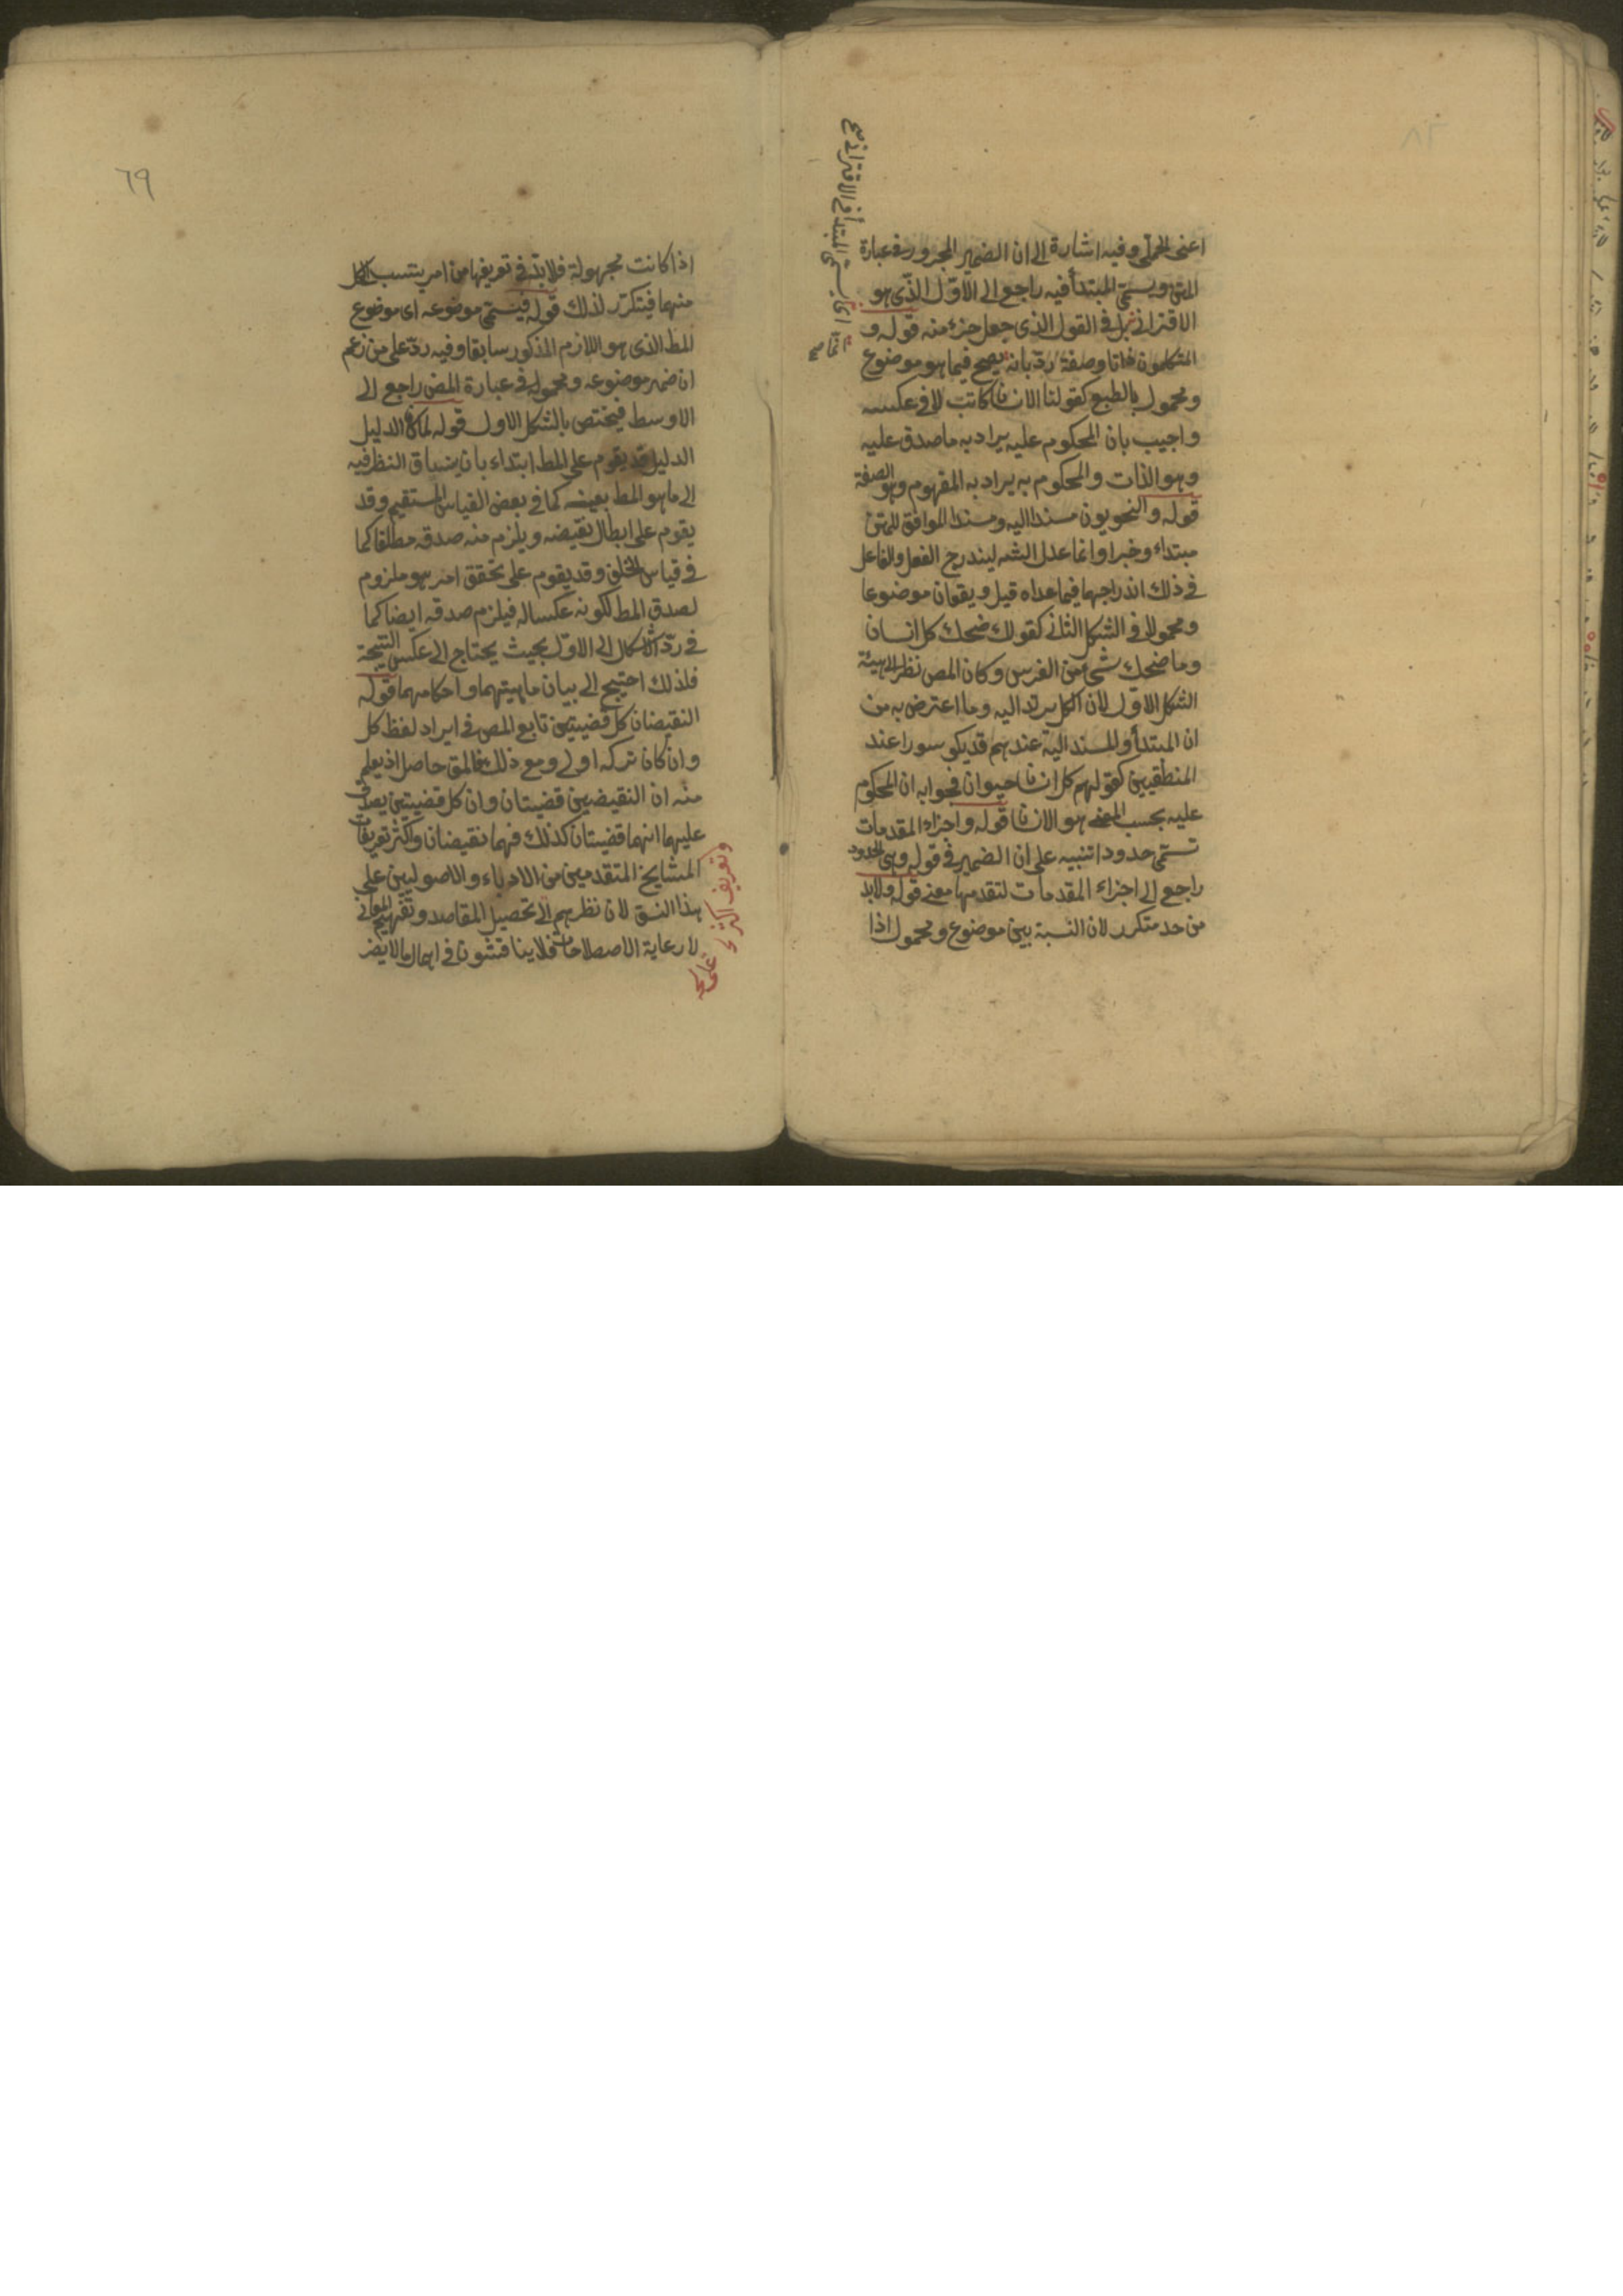 اعنى الحملى وفيه اشارة الى ان الضمير المجرور فى عبارة
المتن ويسمى المبتدأ فيه راجع الى الاوّل الذى هو
الاقترانى بل فى القول الذى جعل جزء منه قوله و
المتكلمون ذاتا وصفة ردّ بانه يصح فيما هو موضوع
ومحمول بالطبع كقولنا الانسان كاتب لا فى عكسه
واجيب بان المحكوم عليه يراد به ما صدق عليه
وهو الذات والمحكوم به يراد به المفهوم وهو الصفة
قوله والنحويون مسندا اليه ومسندا الموافق للمتن
مبتداء وخبرا وانما عدل الشه ليندرج الفعل والفاعل
فى ذلك اندراجهما فيما عداه قيل ويقعان موضوعا
ومحمولا فى الشكل الثانى كقولك ضحك كل انسان
وما ضحك شىء من الفرس وكان المص نظر الى هيئة
الشكل الاوّل لان الكل يرتد اليه وما اعترض به من
ان المبتدأ والمسند اليه عندهم قد يكو سورا عند
المنطقيين كقولهم كل انسان حيوان فجوابه ان المحكوم
عليه بحسب المعنى هو الانسان قوله واجزاء المقدمات
تسمّى حدودا تنبيه على ان الضمير فى قوله وهى الحدود
راجع الى اجزاء المقدمات لتقدمها معنى قوله ولابد
من حد متكرر لان النسبة بين موضوع ومحمول اذا
اى يسمى المبتدأ فى الاقترانى
٦٩
اذا كانت مجهولة فلابدّ فى تعريفها من امر ينتسب الى كل
منهما فيتكرّر لذلك قوله فيسمّى موضوعه اى موضوع
المط الذى هو اللازم المذكور سابقا وفيه ردّ على من زعم
ان ضمير موضوعه ومحموله فى عبارة المص راجع الى
الاوسط فيختص بالشكل الاول قوله لما كان الدليل
الدليل قد يقوم على المط ابتداء بان ينساق النظر فيه
الى ما هو المط بعينه كما فى بعض القياس المستقيم وقد
يقوم على ابطال نقيضه ويلزم منه صدقه مطلقا كما
فى قياس الخلف وقد يقوم على تحقق امر هو ملزوم
لصدق المط لكونه عكسا له فيلزم صدقه ايضا كما
فى ردّ الاشكال الى الاوّل بحيث يحتاج الى عكس النتيجة
فلذلك احتيج الى بيان ماهيتهما واحكامهما قوله
النقيضان كل قضيتين تابع المص فى ايراد لفظ كل
وان كان تركه اولى ومع ذلك فالمق حاصل اذ يعلم
منه ان النقيضين قضيتان وان كل قضيتين يصدق
عليهما انهما قضيتان كذلك فهما نقيضان واكثر تعريفات
المشايخ المتقدمين من الادباء والاصوليين على
هذا النسق لان نظرهم الى تحصيل المقاصد وتفهيم المعانى
لا رعاية الاصطلاحات فلا يناقشون فى اهمال ما لا يضر
وتعريف اكثر